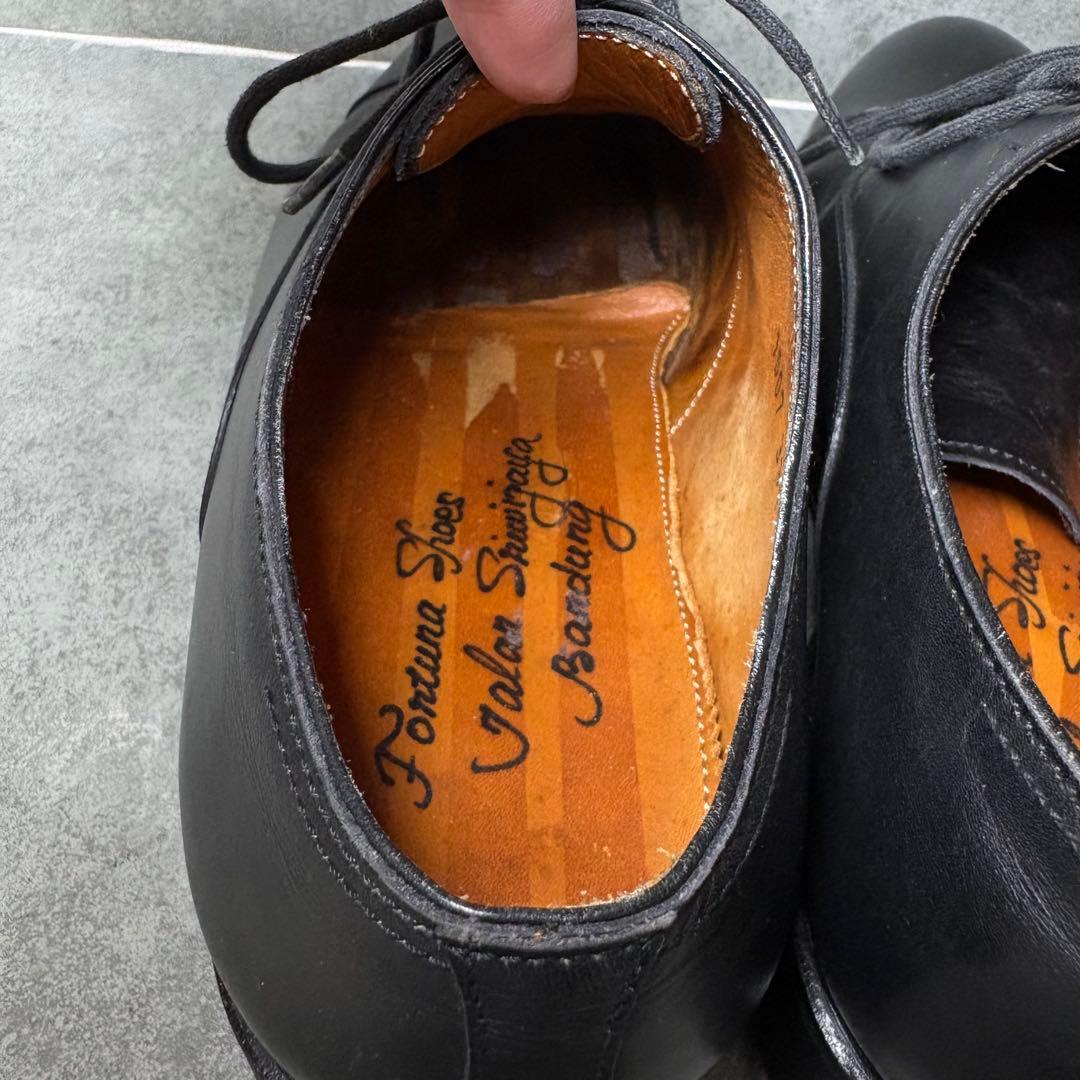 Fortuna Shoes
Jalan Sriwijaya
Bandung
Shoes